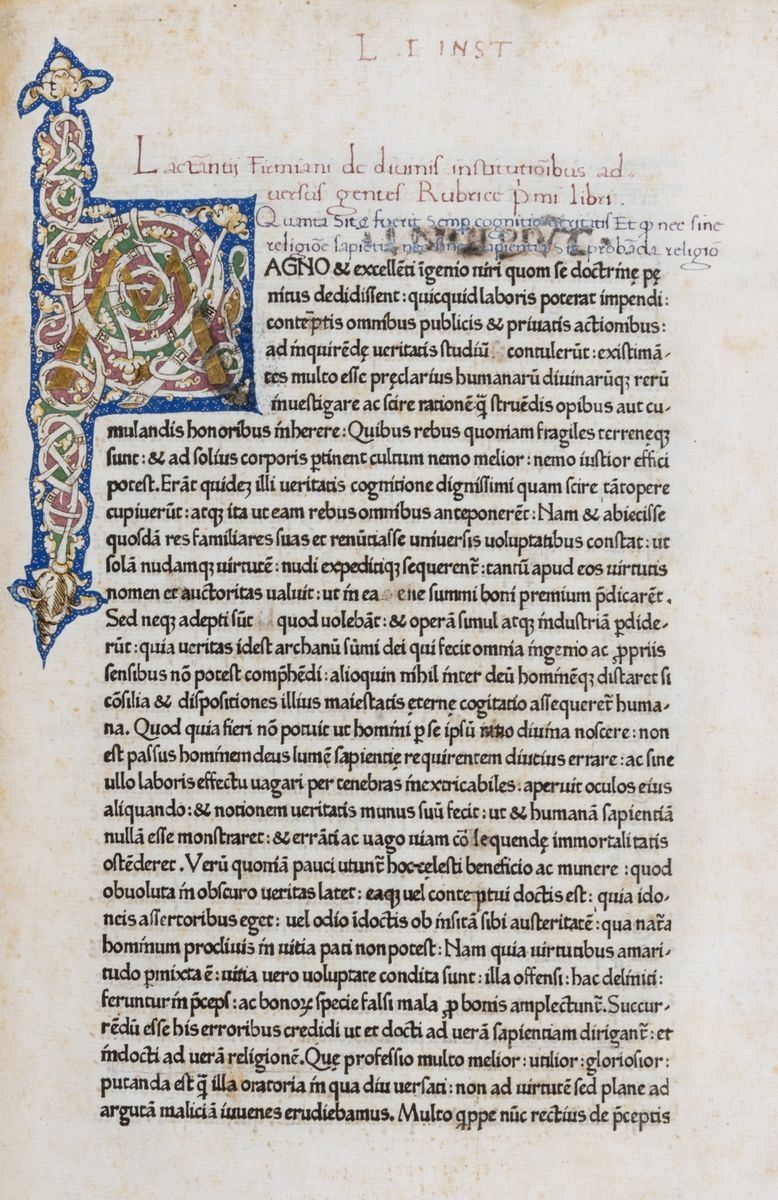 L I INST
Lactantii Firmiani de diuinis institutiōibus ad-
uersus gentes Rubrice p̄mi libri.
Quanta Sit & fuerit Semp cognitio ueritatis Et q nec sine
religiōe sapietia nec sine sapientia Sit probāda religiō
MAGNO & excellēti īgenio uiri quom se doctrinę pę
nitus dedidissent: quicquid laboris poterat impendi:
contēptis omnibus publicis & priuatis actionibus:
ad inquirēdę ueritatis studiū contulerūt: existimā-
tes multo esse pręclarius humanarū diuinarūq; rerū
inuestigare ac scire rationē q̄ struēdis opibus aut cu-
mulandis honoribus inherere: Quibus rebus quoniam fragiles terreneq;
sunt: & ad solius corporis ꝑtinent cultum nemo melior: nemo iustior effici
potest. Erāt quidez illi ueritatis cognitione dignissimi quam scire tātopere
cupiuerūt: atq; ita ut eam rebus omnibus anteponerēt: Nam & abiecisse
quosdā res familiares suas et renūtiasse uniuersis uoluptatibus constat: ut
solā nudamq; uirtutē: nudi expeditiq; sequerent̄: tantū apud eos uirtutis
nomen et auctoritas ualuit: ut in ea ene summi boni premium p̄dicarēt.
Sed neq; adepti sūt quod uolebāt: & operā simul atq; industriā ꝑdide-
rūt: quia ueritas idest archanū sūmi dei qui fecit omnia ingenio ac ꝓpriis
sensibus nō potest comp̄hēdi: alioquin nihil inter deū hominēq; distaret si
cōsilia & dispositiones illius maiestatis eternę cogitatio assequeret̄ huma-
na. Quod quia fieri nō potuit ut homini ꝑ se ipsū ratio diuina noscere: non
est passus hominem deus lumē sapientię requirentem diutius errare: ac sine
ullo laboris effectu uagari per tenebras inextricabiles. aperuit oculos eius
aliquando: & notionem ueritatis munus suū fecit: ut & humanā sapientiā
nullā esse monstraret: & errāti ac uago uiam cōsequendę immortalitatis
ostēderet. Verū quoniā pauci utunt̄ hoc cęlesti beneficio ac munere: quod
obuoluta in obscuro ueritas latet: eaq; uel conteptui doctis est: quia ido-
neis assertoribus eget: uel odio īdoctis ob insitā sibi austeritatē: qua nat̄a
hominum procliuis in uitia pati non potest: Nam quia uirtutibus amari-
tudo ꝑmixta ē: uitia uero uoluptate condita sunt: illa offensi: hac deliniti:
feruntur in p̄ceps: ac bonoꝝ specie falsi mala ꝓ bonis amplectunt̄. Succur-
rēdū esse his erroribus credidi ut et docti ad uerā sapientiam dirigant̄: et
indocti ad uerā religionē. Quę professio multo melior: utilior: gloriosior:
putanda est q̄ illa oratoria in qua diu uersati: non ad uirtutē sed plane ad
argutā maliciā iuuenes erudiebamus. Multo qppe nūc rectius de p̄ceptis